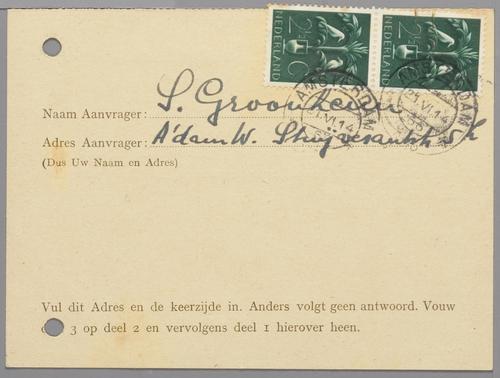 2½ C NEDERLAND
2½ C NEDERLAND
AMSTERDAM
21.VI.14
Naam Aanvrager: S. Groonheim
Adres Aanvrager: A'dam W. Stuyvesantstr 5 I
(Dus Uw Naam en Adres)
Vul dit Adres en de keerzijde in. Anders volgt geen antwoord. Vouw
3 op deel 2 en vervolgens deel 1 hierover heen.